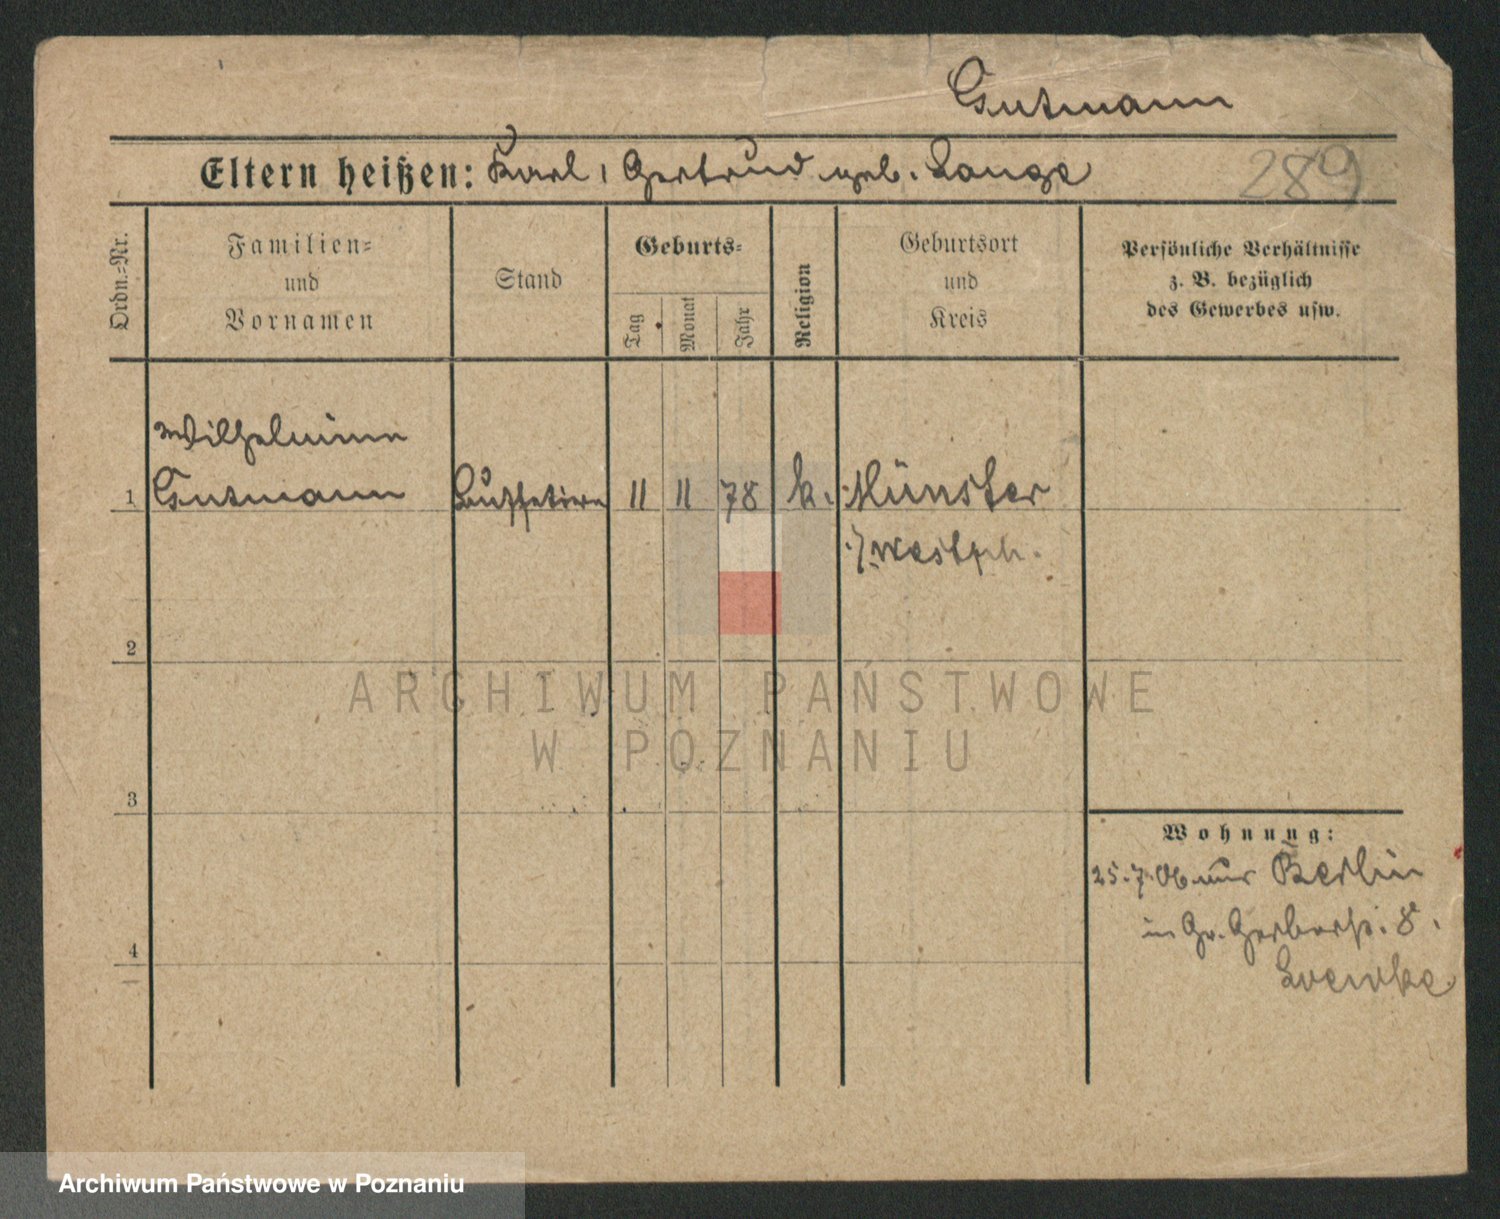 Gutmann
Eltern heißen: Karl, Gertrud geb. Lange
289
Ordn.-Nr.
Familien-
und
Vornamen
Stand
Geburts-
Tag
Monat
Jahr
Religion
Geburtsort
und
Kreis
Persönliche Verhältnisse
z. B. bezüglich
des Gewerbes usw.
Wilhelmine
1 Gutmann Buffetiere 11 11 78 k. Münster
i/Westph.
2
ARCHIWUM PAŃSTWOWE
W POZNANIU
3
Wohnung:
25.7.06 aus Berlin
in Gr. Gerberstr. 8.
4
Archiwum Państwowe w Poznaniu